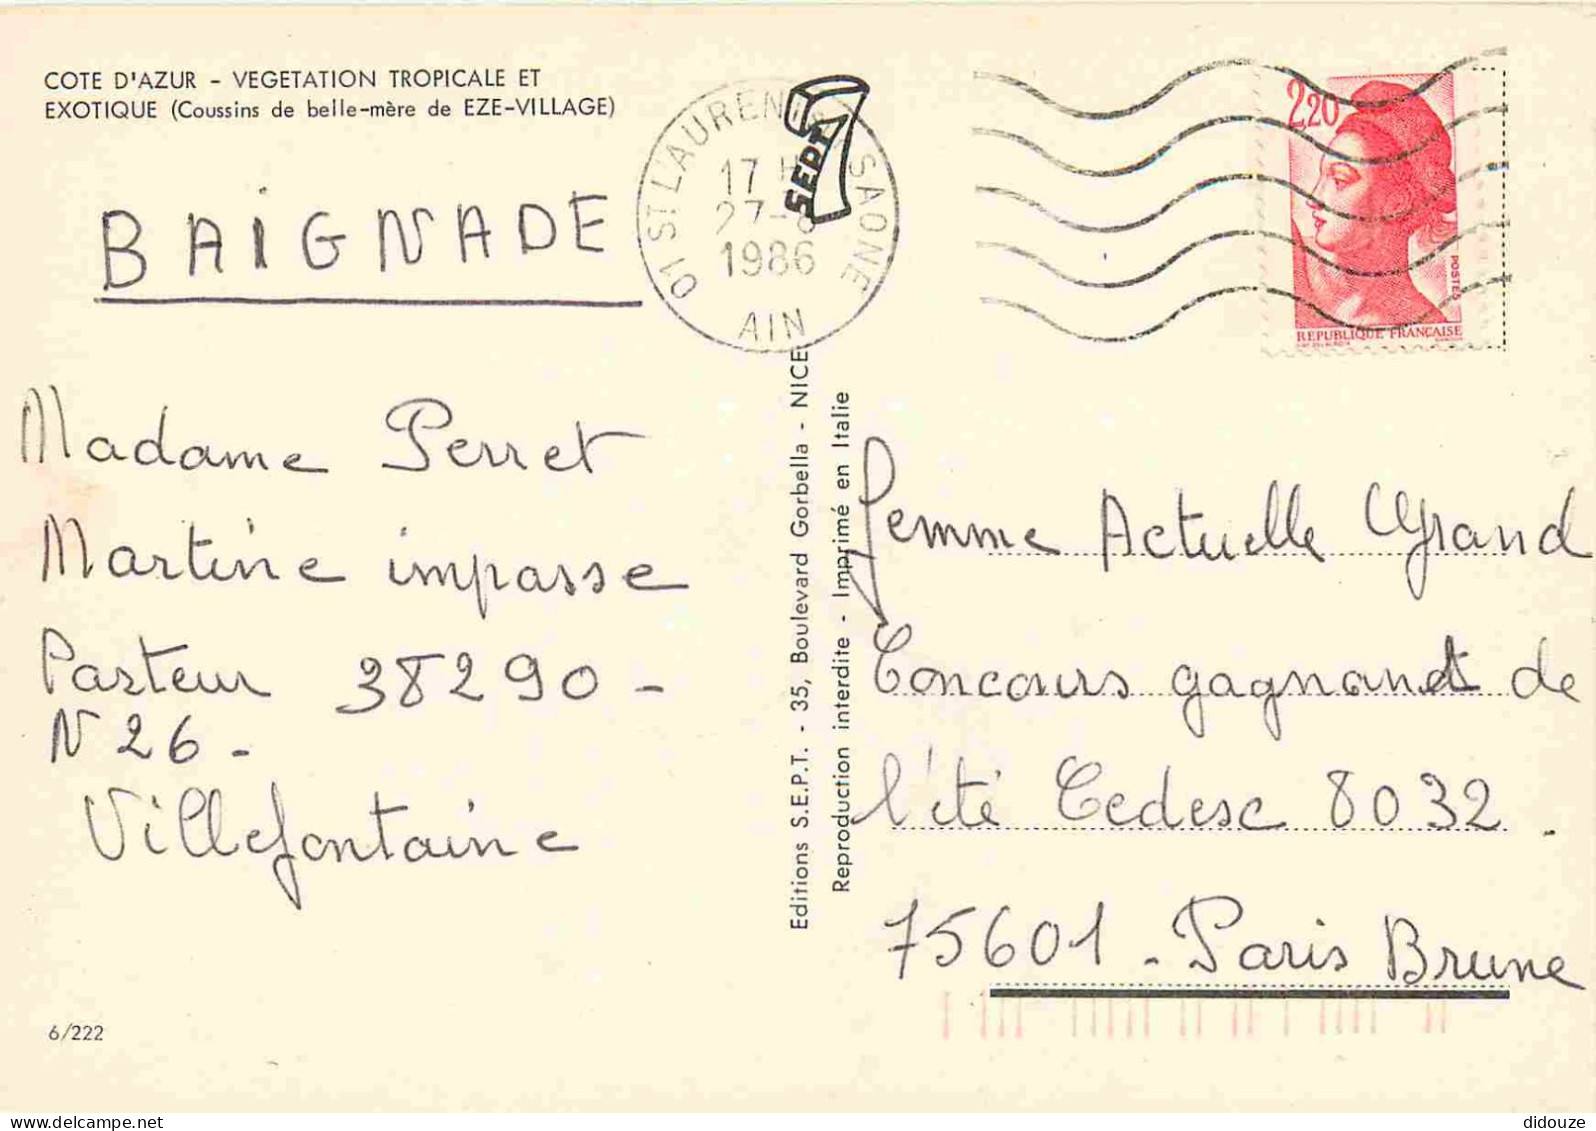 COTE D'AZUR - VEGETATION TROPICALE ET
EXOTIQUE (Coussins de belle-mère de EZE-VILLAGE)
BAIGNADE
Madame Perret
Martine impasse
Pasteur 38290 -
N 26 -
Villefontaine
6/222
01 ST LAURENT SAONE
17 H
27-8
1986
AIN
SEPT
Editions S.E.P.T. - 35, Boulevard Gorbella - NICE
Reproduction interdite - Imprimé en Italie
2,20
POSTES
REPUBLIQUE FRANÇAISE
Femme Actuelle Grand
Concours gagnant de
l'été Cedesc 8032.
75601 - Paris Brune
didouze